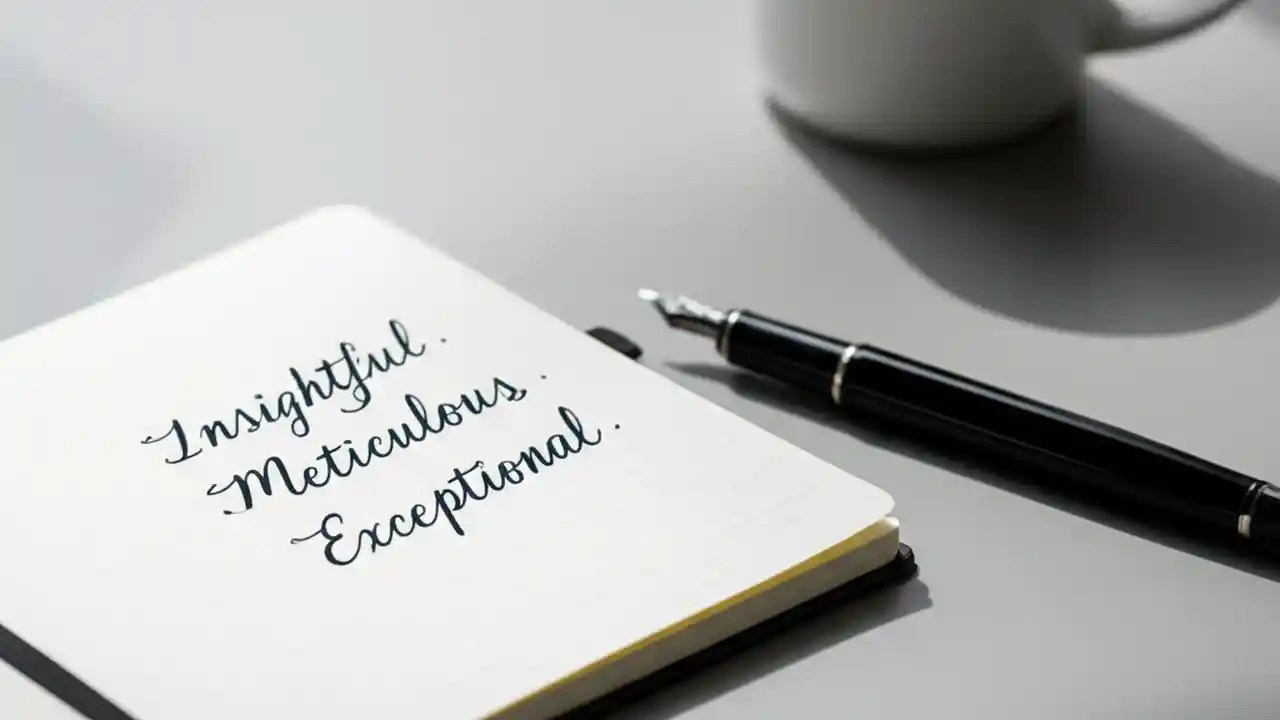 Insightful.
Meticulous.
Exceptional.